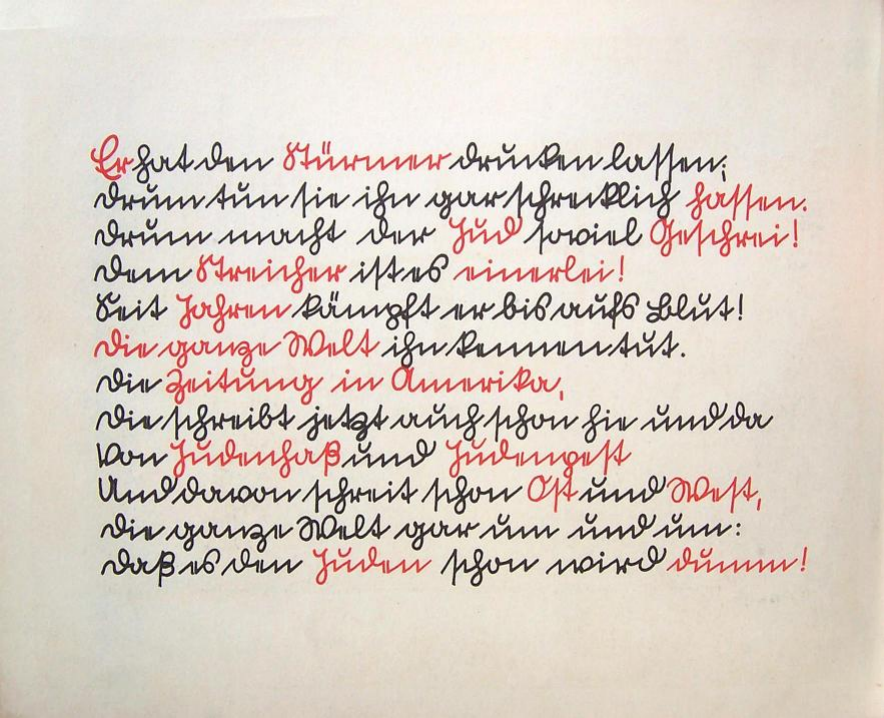 Er hat den Stürmer drucken lassen;
drum tun sie ihn gar schrecklich hassen.
Drum macht der Jud soviel Geschrei!
Dem Streicher ist es einerlei!
Seit Jahren kämpft er bis aufs Blut!
Die ganze Welt ihn kennen tut.
Die Zeitung in Amerika,
die schreibt jetzt auch schon hie und da
von Judenhaß und Judenpest
Und davon schreit schon Ost und West,
die ganze Welt gar um und um:
daß es den Juden schon wird dumm!